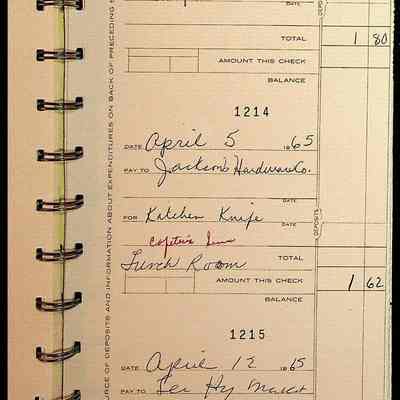 TOTAL 1 80
AMOUNT THIS CHECK
BALANCE
1214
DATE April 5 1965
PAY TO Jackson Hardware Co.
DATE
FOR Kitchen Knife
DATE
DEPOSITS
Lunch Room TOTAL
AMOUNT THIS CHECK 1 62
BALANCE
1215
DATE April 12 1965
PAY TO
RCE OF DEPOSITS AND INFORMATION ABOUT EXPENDITURES ON BACK OF PRECEDING